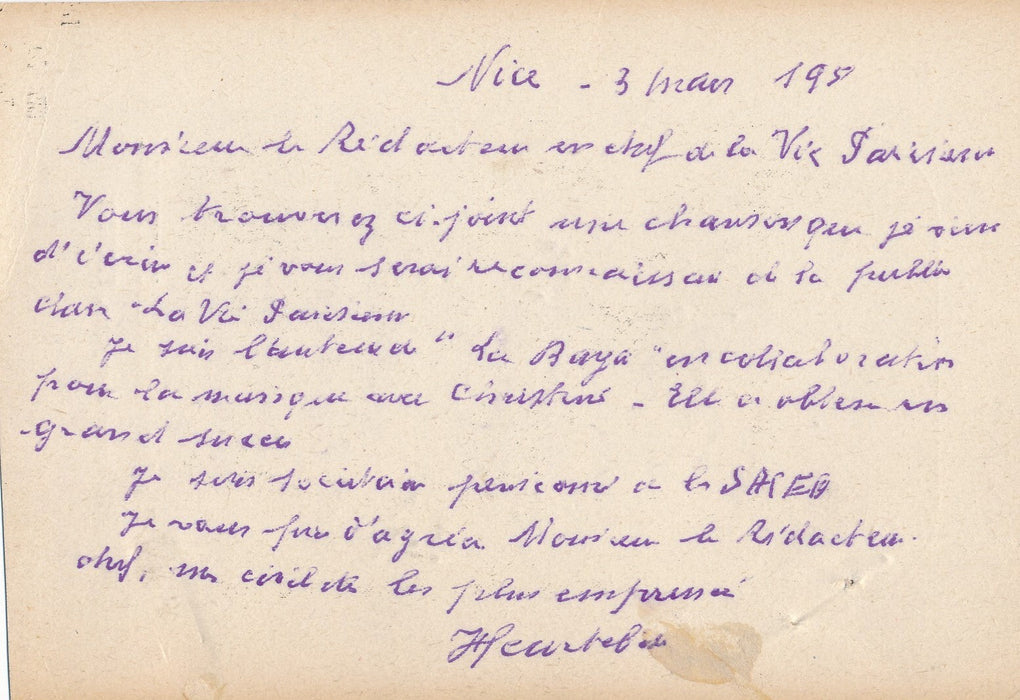 Nice - 3 mars 195
Monsieur le Rédacteur en chef de la Vie Parisienne
Vous trouverez ci-joint une chanson que je viens
d'écrire et je vous serai reconnaissant de la publier
dans "La Vie Parisienne
Je suis l'auteur de "La Baya" en collaboration
pour la musique avec Christiné - Elle a obtenu un
grand succès
Je suis sociétaire pensionné de la SACEM
Je vous prie d'agréer Monsieur le Rédacteur
chef, mes civilités les plus empressées